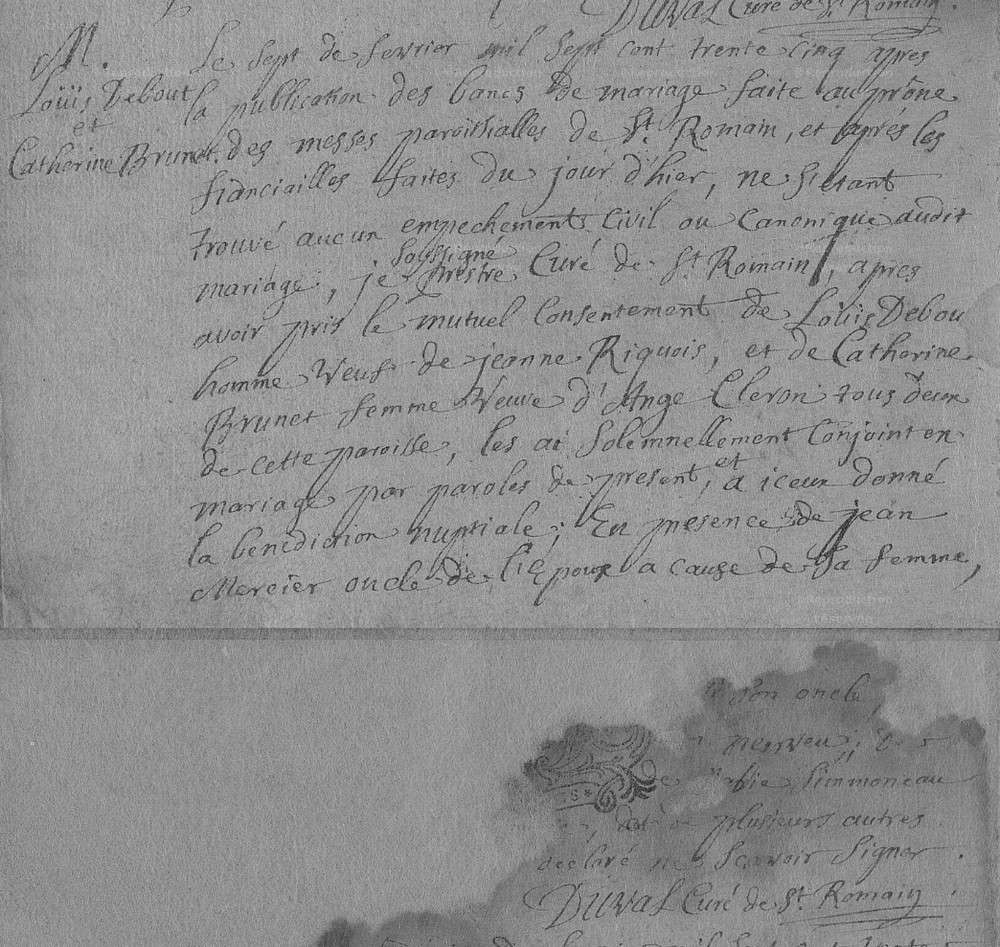 Duval Curé de St. Romain.
M.
Loüis Debout
et
Catherine Brunet.
Le sept de fevrier mil sept cent trente cinq apres
la publication des bancs de mariage faite au prône
des messes paroissialles de St. Romain, et aprés les
fianciailles faites du jour d'hier, ne s'etant
trouvé aucun empechement civil ou canonique audit
mariage, je soussigné prestre Curé de St Romain, apres
avoir pris le mutuel consentement de Loüis Debou
homme veuf de jeanne Riquois, et de Catherine
Brunet femme veuve d'Ange Cleron tous deux
de cette paroisse, les ai solemnellement conjoint en
mariage par paroles de present, et à iceux donné
la benediction nuptiale; En presence de jean
Mercier oncle de l'époux a cause de sa femme,
son oncle,
nepveu;
de Simmoneau
plusieurs autres
declaré ne scavoir signer.
Duval Curé de St. Romain.